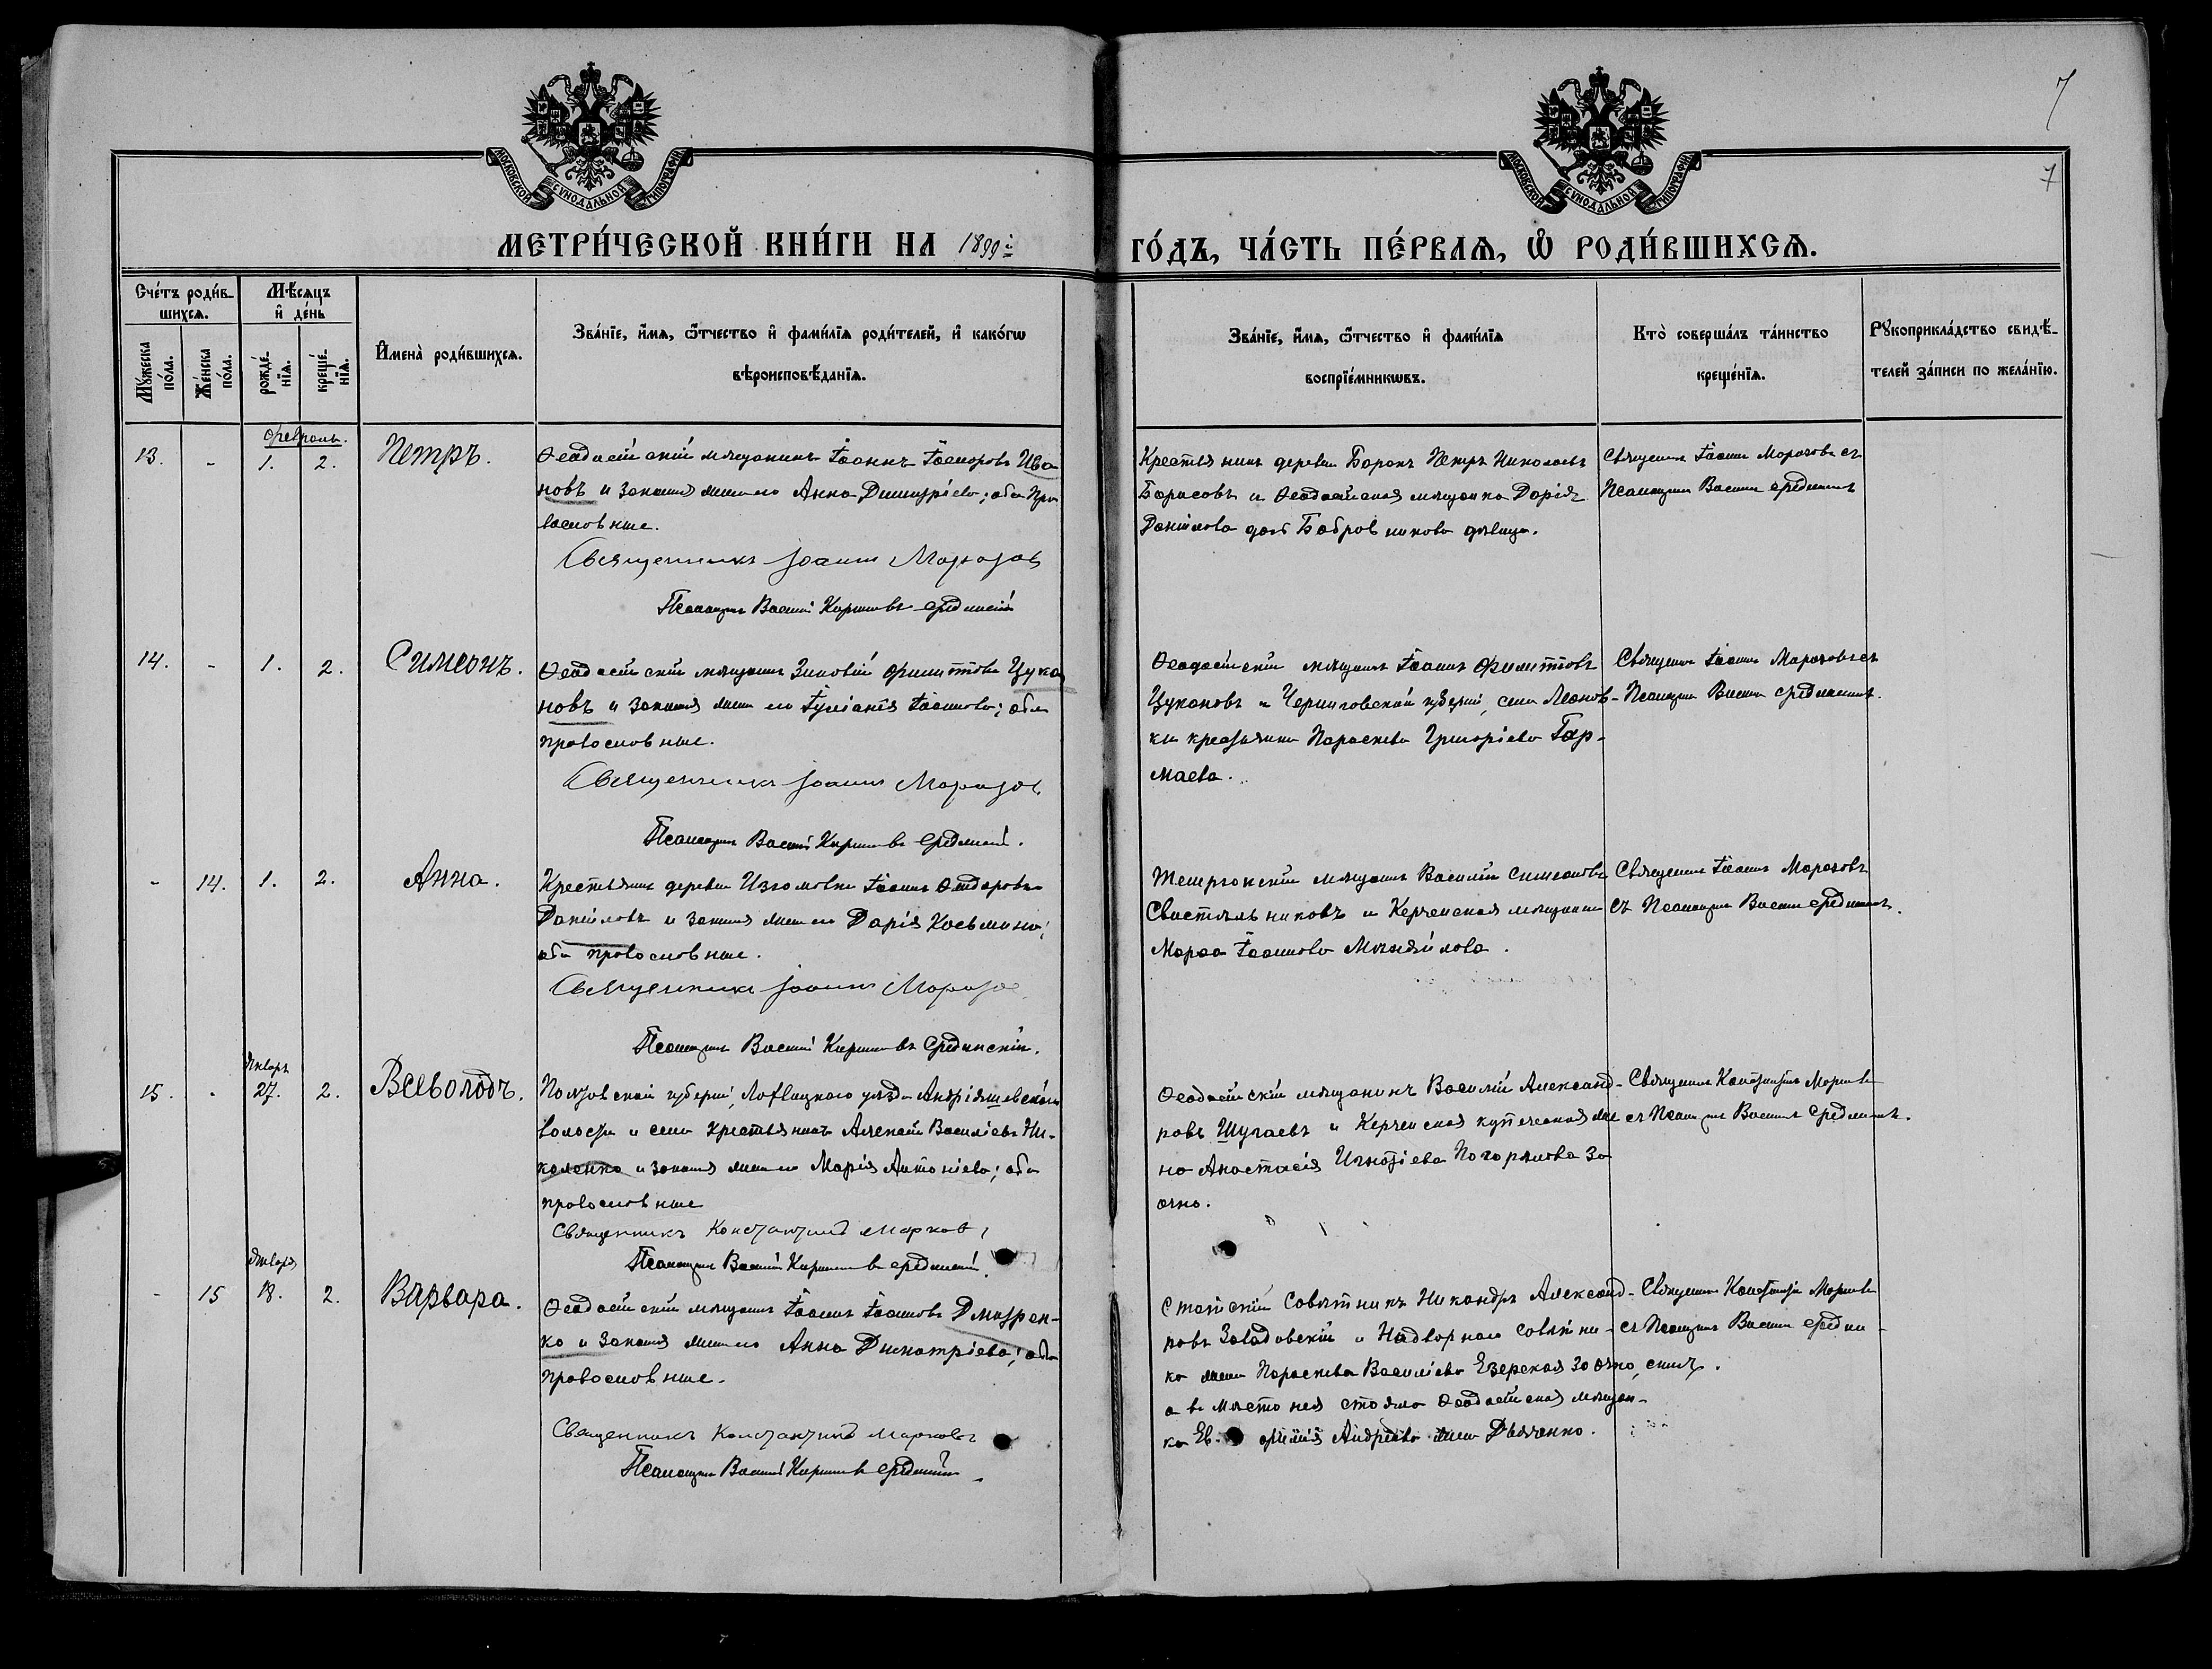 7
7
МОСКОВСКОЙ СУНОДАЛЬНОЙ ТИПОГРАФІИ
МОСКОВСКОЙ СУНОДАЛЬНОЙ ТИПОГРАФІИ
МЕТРИ́ЧЕСКОЙ КНИ́ГИ НА 1899й ГО́ДЪ, ЧА́СТЬ ПЕ́РВАѦ, Ѡ҆ РОДИ́ВШИХСѦ.
Сче́тъ роди́в-
шихсѧ.
Мꙋ́жеска по́ла.
Же́нска по́ла.
Мѣ́сѧцъ и҆ де́нь
рожде́-нїѧ.
креще́-нїѧ.
И҆мена̀ роди́вшихсѧ.
Зва́нїе, и҆́мѧ, ѻ҆́тчество и҆ фами́лїѧ роди́телей, и҆ како́гѡ
вѣроисповѣ́данїѧ.
Зва́нїе, и҆́мѧ, ѻ҆́тчество и҆ фами́лїѧ
воспрїе́мникѡвъ.
Кто̀ соверша́лъ та́инство
креще́нїѧ.
Рꙋкоприкла́дство свидѣ́-
телей за́писи по жела́нїю.
Февраль.
13. - 1. 2. Петръ.
Ѳеодосійскій мѣщанинъ Іоаннъ Ива-
новъ и законная жена его Анна Димитріева; оба пра-
вославные.
Священникъ Іоаннъ Морозов
Псаломщикъ Василій Срединскій
Крестьянинъ деревни Петръ Николаевъ
Борисовъ и Ѳеодосійская мѣщанка Дарія
Данилова дочь Бобровникова дѣвица.
Священникъ Іоаннъ Морозовъ съ
Псаломщ. Васил. Средински
14. - 1. 2. Симеонъ.
Ѳеодосійскій мѣщанинъ Зиновій Филипповъ Цука-
новъ и законная жена его Іуліанія Іоаннова; оба
православные.
Священникъ Іоаннъ Морозов
Псаломщикъ Василій Срединскій.
Ѳеодосійскій мѣщанинъ Іоаннъ Филипповъ
Цукановъ и Черниговской губерніи, села Леонов-
ки крестьянка Параскева Григоріева Гар-
маева.
Священникъ Іоаннъ Морозовъ съ
Псаломщ. Васил. Средински
- 14. 1. 2. Анна.
Крестьянинъ деревни Изюмовки Іоаннъ Ѳеодоровъ
Даниловъ и законная жена его Дарія Косьмина;
оба православные.
Священникъ Іоаннъ Морозов
Псаломщикъ Василій Срединскій.
мѣщанинъ Василій Симеоновъ
Свистѣльниковъ и Керченская мѣщанка
Марѳа Іоаннова
Священникъ Іоаннъ Морозовъ
съ Псаломщ. Васил. Средински
Январь
15. - 27. 2. Всеволодъ.
Полтавской губерніи, Лохвицкаго уѣзда Андріяшевской
волости и села крестьянинъ Алексій Василіевъ Ни-
коленко и законная жена его Марія Антоніева; оба
православные
Священникъ Константинъ Марков
Псаломщикъ Василій Срединскій
Ѳеодосійскій мѣщанинъ Василій Александ-
ровъ Шугаевъ и Керченская купеческая же-
на Анастасія Игнатіева Погорѣлова за-
очно.
Священникъ Константинъ Марковъ
съ Псаломщ. Васил. Средински
Января
- 15 18. 2. Варвара.
Ѳеодосійскій мѣщанинъ Іоаннъ Іоанновъ Дмитрен-
ко и законная жена его Анна Димитріева; оба
православные.
Священникъ Константинъ Марковъ
Псаломщикъ Василій Срединскій
Статскій Совѣтникъ Никандръ Александ-
ровъ Завадовскій и Надворнаго совѣтни-
ка жена Параскева Василіева Езерская заочно,
а вмѣсто нея стояла Ѳеодосійская мѣщан-
ка Ев фимія Андреева жена Дьяченко.
Священникъ Константинъ Марковъ
съ Псаломщ. Васил. Средин-
скимъ.